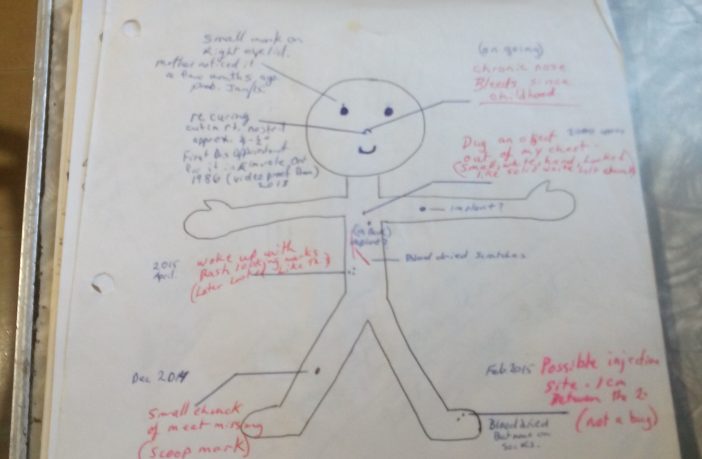 Small mark on
Right eyelid.
mother noticed it
a few months ago
prob. Jan/15
(on going)
chronic nose
Bleeds since
childhood.
re curing
cut in rt. nostril
approx. 4-½"
First
1986 (video proof
2013
Dug an object
out of my chest.
(Small, white, hard, hooked)
like solid white
implant?
(in Back)
implant?
Blood dried scratches
2015
April.
woke up with
Rash looking marks
(Later
Dec 2014
Small chunk
of meat missing
(scoop mark)
Feb 2015
Possible injection
site. 1cm
Between the 2.
(not a bug)
Blood dried
But none on
socks.